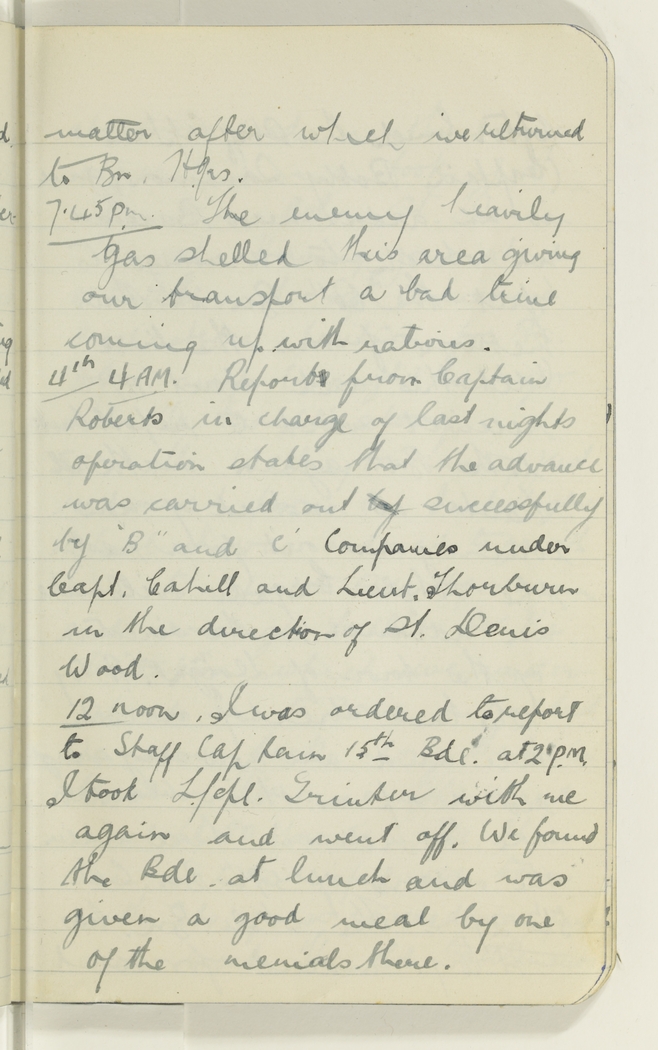 matter after which we returned
to Bn. Hqrs.
7.45 p.m. The enemy heavily
gas shelled this area giving
our transport a bad time
coming up with rations.
4th 4 AM. Reports from Captain
Roberts in charge of last nights
operation states that the advance
was carried out by successfully
by "B" and C' Companies under
Capt. Cahill and Lieut. Thorburn
in the direction of St. Denis
Wood.
12 noon. I was ordered to report
to Staff Captain 15th Bde. at 2 p.m.
I took L/cpl. Grinter with me
again and went off. We found
the Bde. at lunch and was
given a good meal by one
of the menials there.